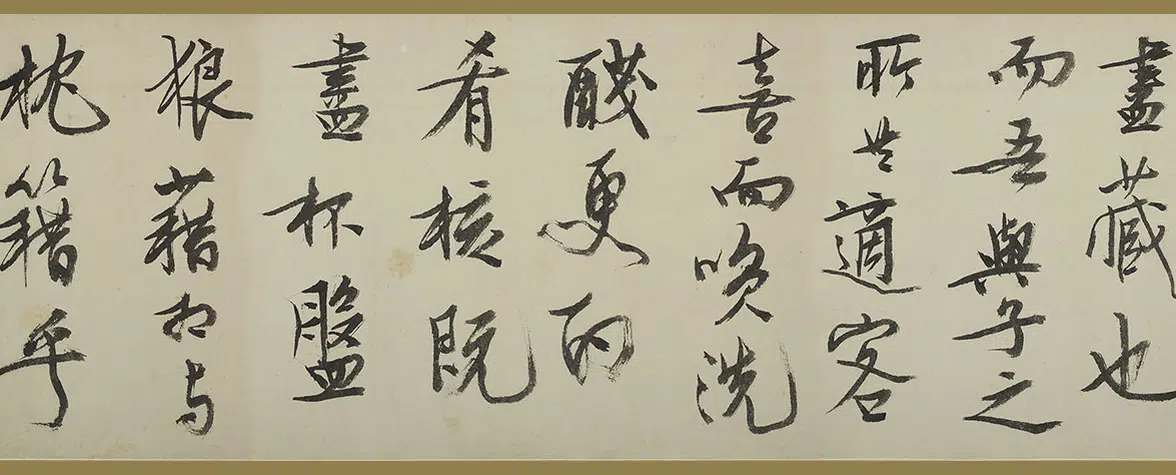 盡藏也
而吾與子之
所共適客
喜而咲洗
醆更酌
肴核既
盡杯盤
狼藉相与
枕籍乎